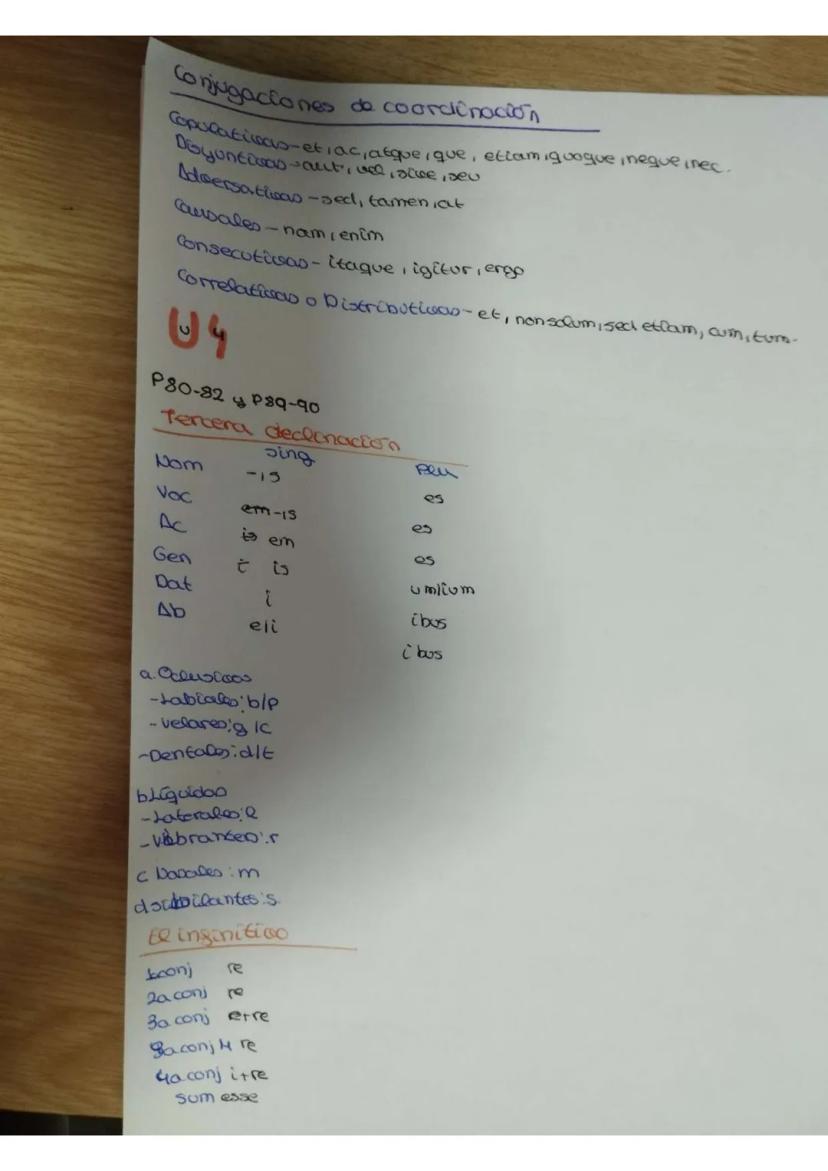 Conjugaciones de coordinación
Copulativas-et, ac, atque, que, etiam, quoque, neque, nec.
Disyuntivas-aut, vel, sive, seu
Adversativas-sed, tamen, at
Causales-nam, enim
Consecutivas-itaque, igitur, ergo
Correlativas o Distributivas-et, non solum, sed etiam, cum, tum.
U4
P80-82 y P89-90
Tercera declinación
sing plu
Nom -is es
Voc em-is es
Ac is em es
Gen i is um/ium
Dat i ibus
Ab e/i ibus
a. Oclusivas
-Labiales: b/p
-Velares: g/c
-Dentales: d/t
b Líquidas
-Laterales: l
-Vibrantes: r
c Nasales: m
d Sibilantes: s
El infinitivo
1conj re
2a conj re
3a conj e+re
3a conj M re
4a conj i+re
sum esse